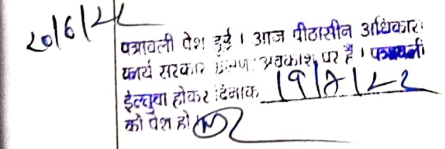 20/6/22
पत्रावली पेश हुई । आज पीठासीन अधिकारी
कार्य सरकार भ्रमण/अवकाश पर है । पत्रावली
ईल्तुवा होकर दिनांक 19/8/22
को पेश हो